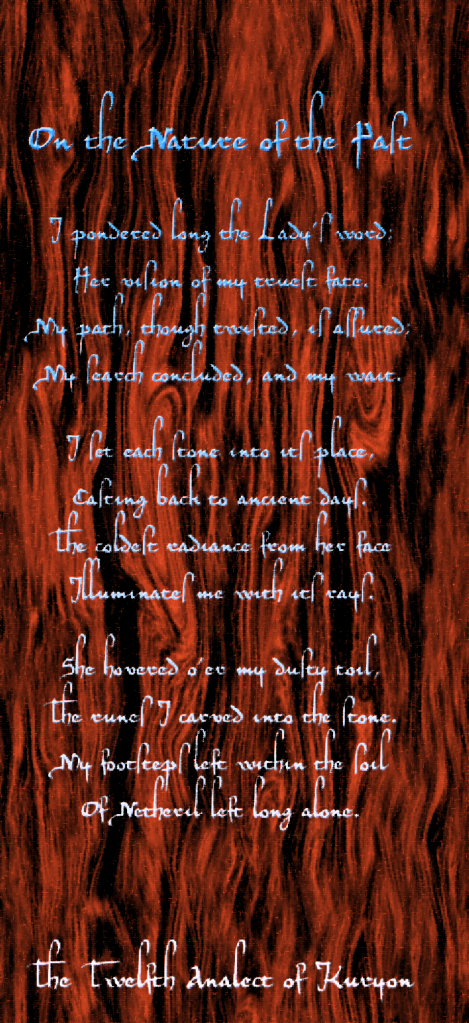 On the Nature of the Past
I pondered long the Lady's word;
Her vision of my truest fate.
My path, though twisted, is assured;
My search concluded, and my wait.
I set each stone into its place,
Casting back to ancient days.
The coldest radiance from her face
Illuminates me with its rays.
She hovered o'er my dusty toil,
The runes I carved into the stone.
My footsteps left within the soil
Of Netheril left long alone.
The Twelfth Analect of Kuryon